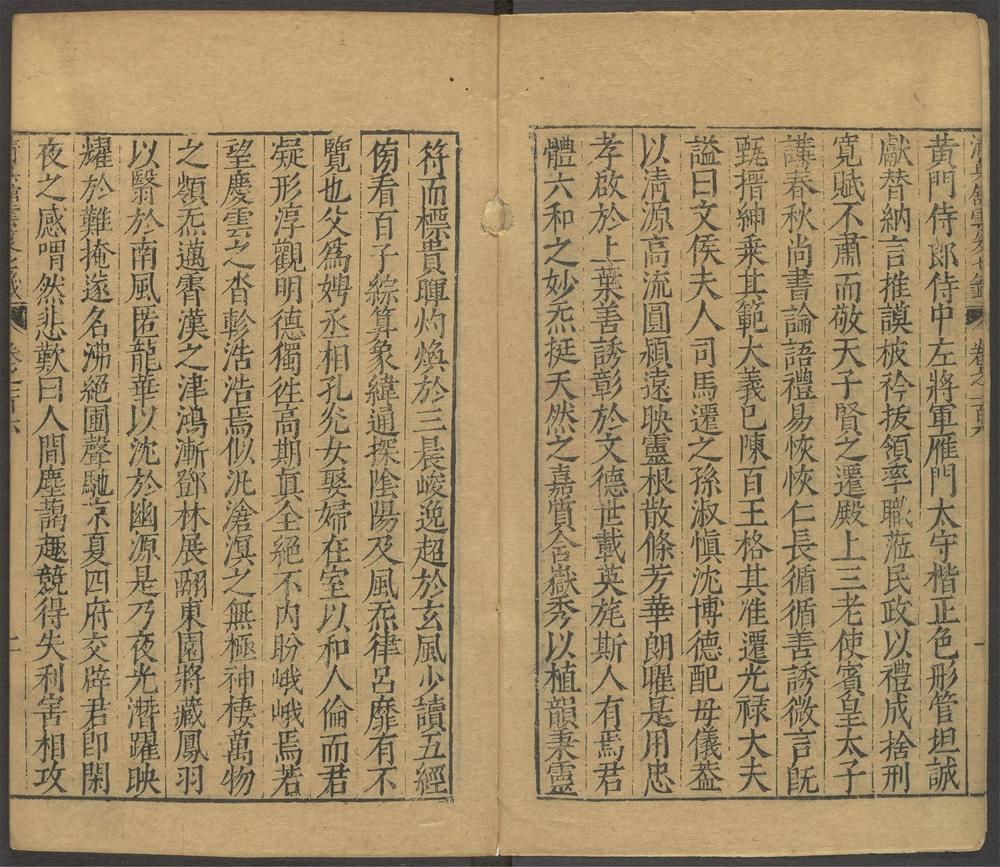 卷之一百六
黃門侍郎侍中左將軍雁門太守楷正色彤管坦誠
獻替納言推謨披衿拔領率職蒞民政以禮成捨刑
寬賦不肅而敬天子賢之遷殿上三老使賓皇太子
講春秋尚書論語禮易恢恢仁長循循善誘微言旣
甄搢紳乗其範大義巳陳百王格其准遷光祿大夫
謚曰文侯夫人司馬遷之孫淑慎沈博德配母儀蓋
以清源高流圓穎遠映靈根散條芳華朗曜是用忠
孝啟於上葉善誘彰於文德世載英旄斯人有焉君
體六和之妙炁挺天然之嘉質含嶽秀以植韻秉靈
符而標貴暉灼煥於三晨峻逸超於玄風少讀五經
傍看百子綜算象緯通探陰陽及風炁律呂靡有不
覽也父爲娉丞相孔光女娶婦在室以和人倫而君
凝形淳觀明德獨徃高期真全絕不内盼峨峨焉若
望慶雲之沓軫浩浩焉似汎滄溟之無極神棲萬物
之頫炁邁霄漢之津鴻漸鄧林展翮東園將藏鳳羽
以翳於南風匿龍華以沈於幽源是乃夜光潛躍映
耀於難掩遂名沸絕圃聲馳京夏四府交辟君卽閑
夜之感喟然悲歎曰人間塵藹趣競得失利害相攻
卷之一百六
二